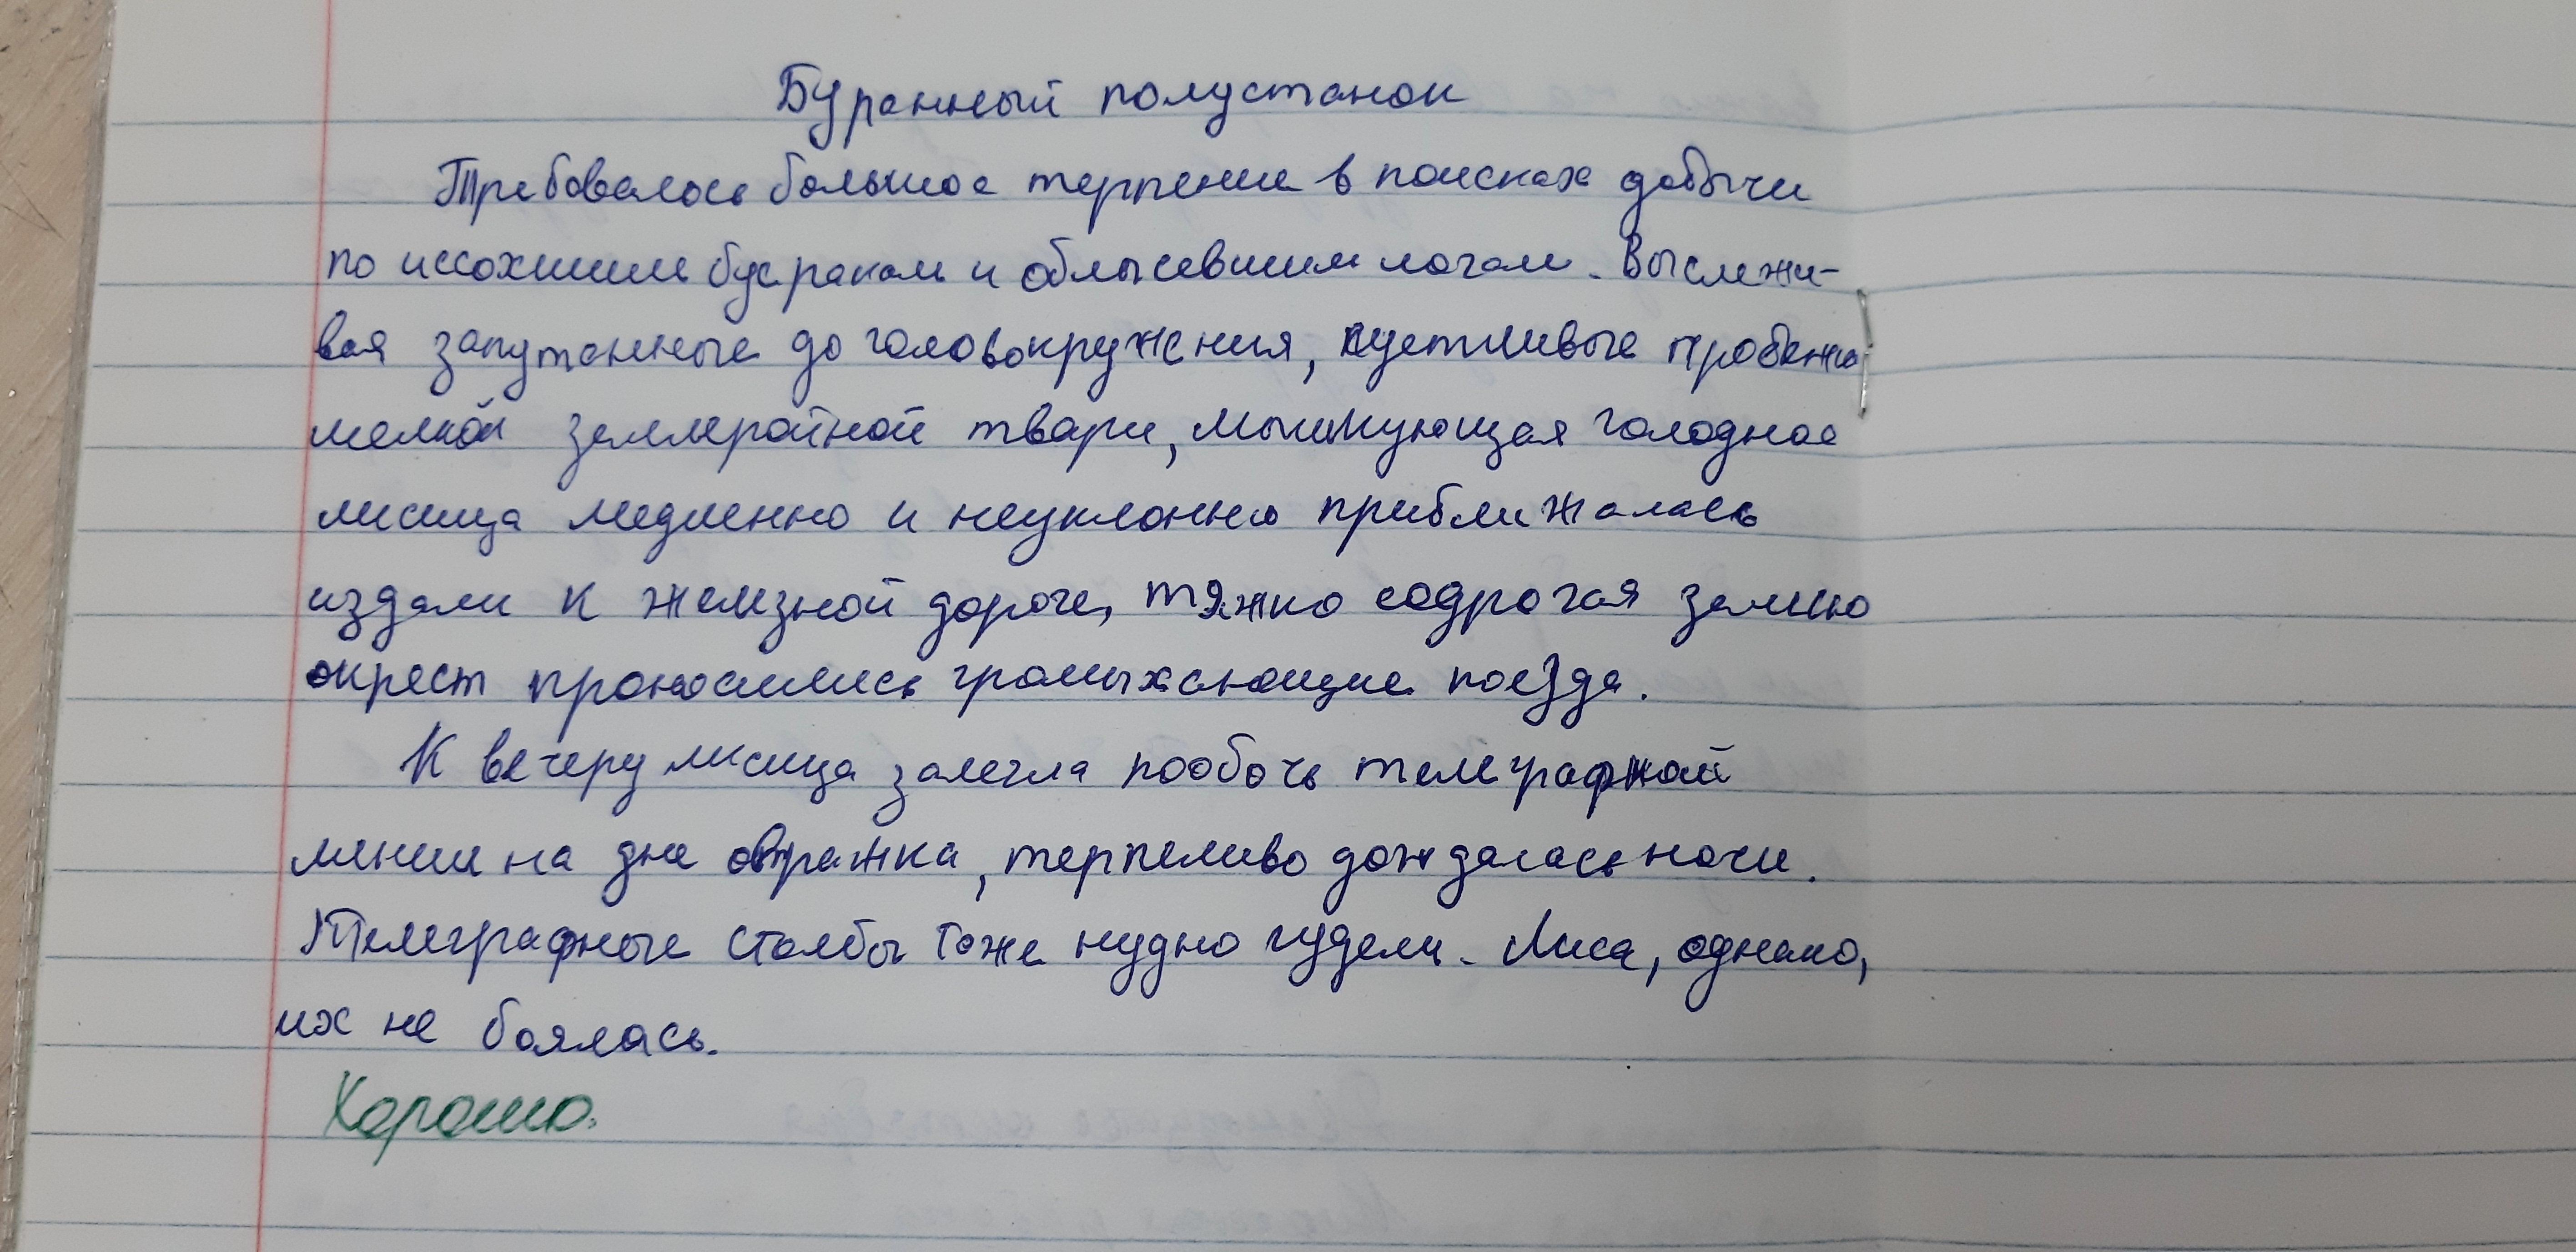 Буранный полустанок
Требовалось большое терпение в поисках добычи
по иссохшим буеракам и облысевшим логам. Выслежи-
вая запутанные до головокружения, суетливые пробежки
мелкой землеройной твари, мышкующая голодная
лисица медленно и неуклонно приближалась
издали к железной дороге, тяжко содрогая землю
окрест проносились громыхающие поезда.
К вечеру лисица залегла пообочь телеграфной
линии на дне овражка, терпеливо дождалась ночи.
Телеграфные столбы тоже нудно гудели. Лиса, однако,
их не боялась.
Хорошо.